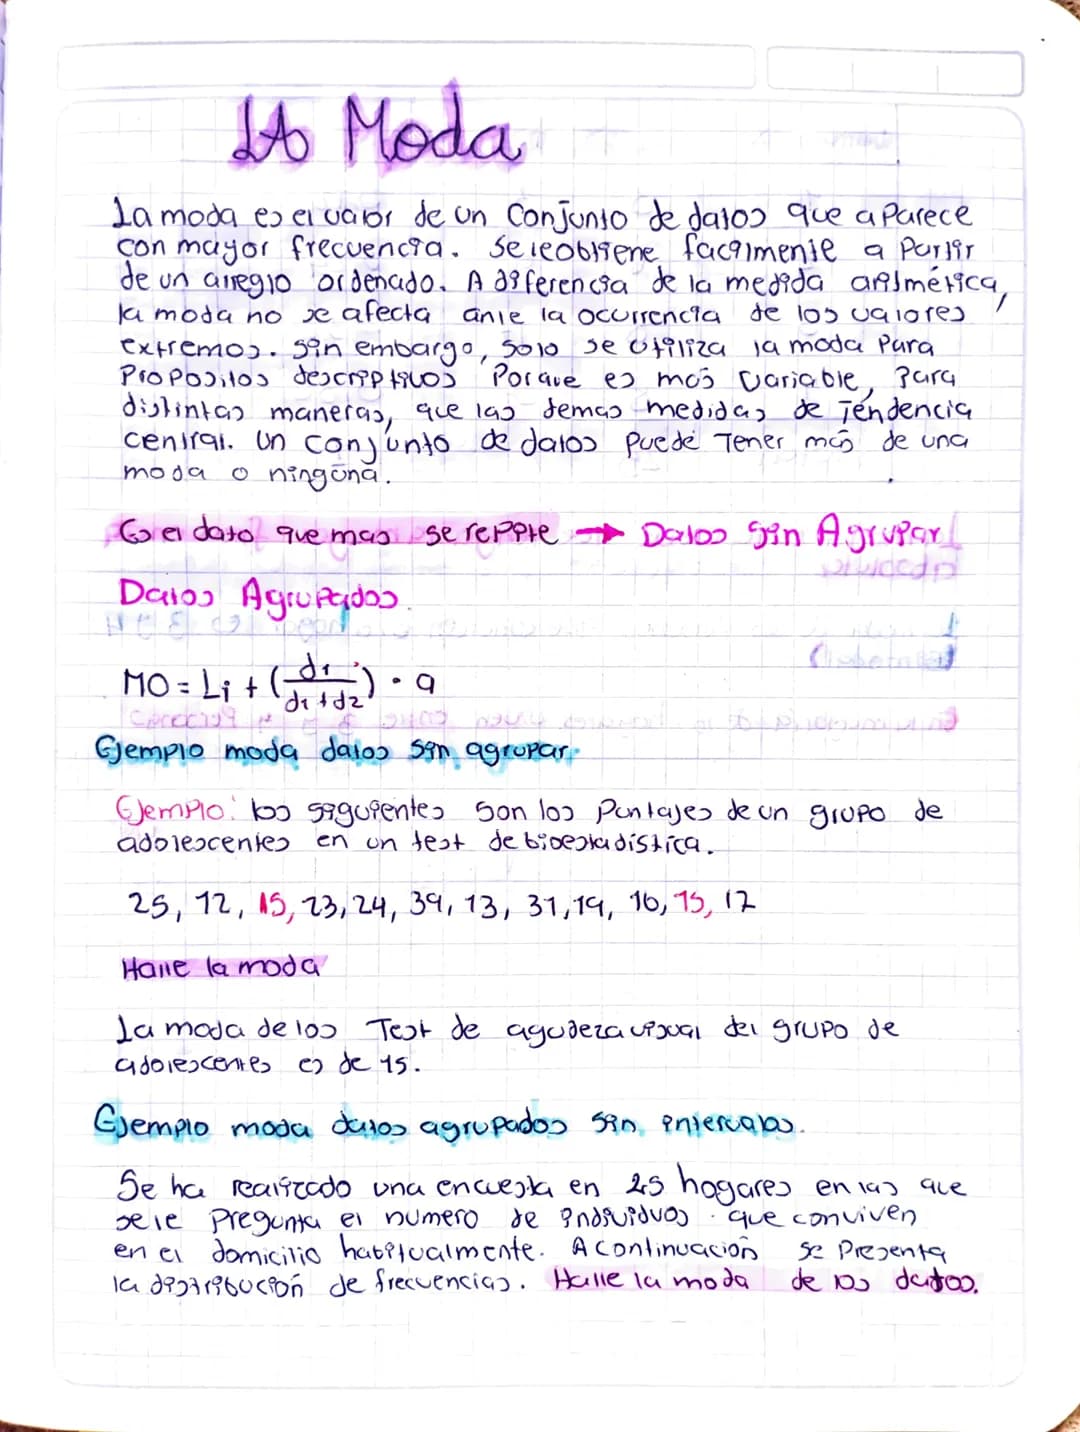 LA Moda
La moda es el valor de un conjunto de datos que aparece
con mayor frecuencia. Se le obtiene facilmente a partir
de un arreglo ordenado. A diferencia de la medida aritmética,
la moda no se afecta ante la ocurrencia de los valores
extremos. sin embargo, solo se utiliza la moda para
propositos descriptivos porque es más variable, para
distintas maneras, que las demas medidas de Tendencia
central. Un conjunto de datos puede Tener más de una
moda o ninguna.
Es el dato que mas se repite → Datos Sin Agrupar
Datos Agrupados.
MO = Li + (d1 / d1 + d2) · a
Ejemplo moda datos sin agrupar.
Ejemplo: los siguientes son los puntajes de un grupo de
adolescentes en un test de bioestadística.
25, 12, 15, 23, 24, 39, 13, 31, 19, 16, 15, 17
Halle la moda
La moda de los Test de agudeza visual del grupo de
adolescentes es de 15.
Ejemplo moda datos agrupados sin intervalos.
Se ha realizado una encuesta en 25 hogares en las que
se le pregunta el numero de individuos que conviven
en el domicilio habitualmente. A continuación se presenta
la distribución de frecuencias. Halle la moda de los datos.